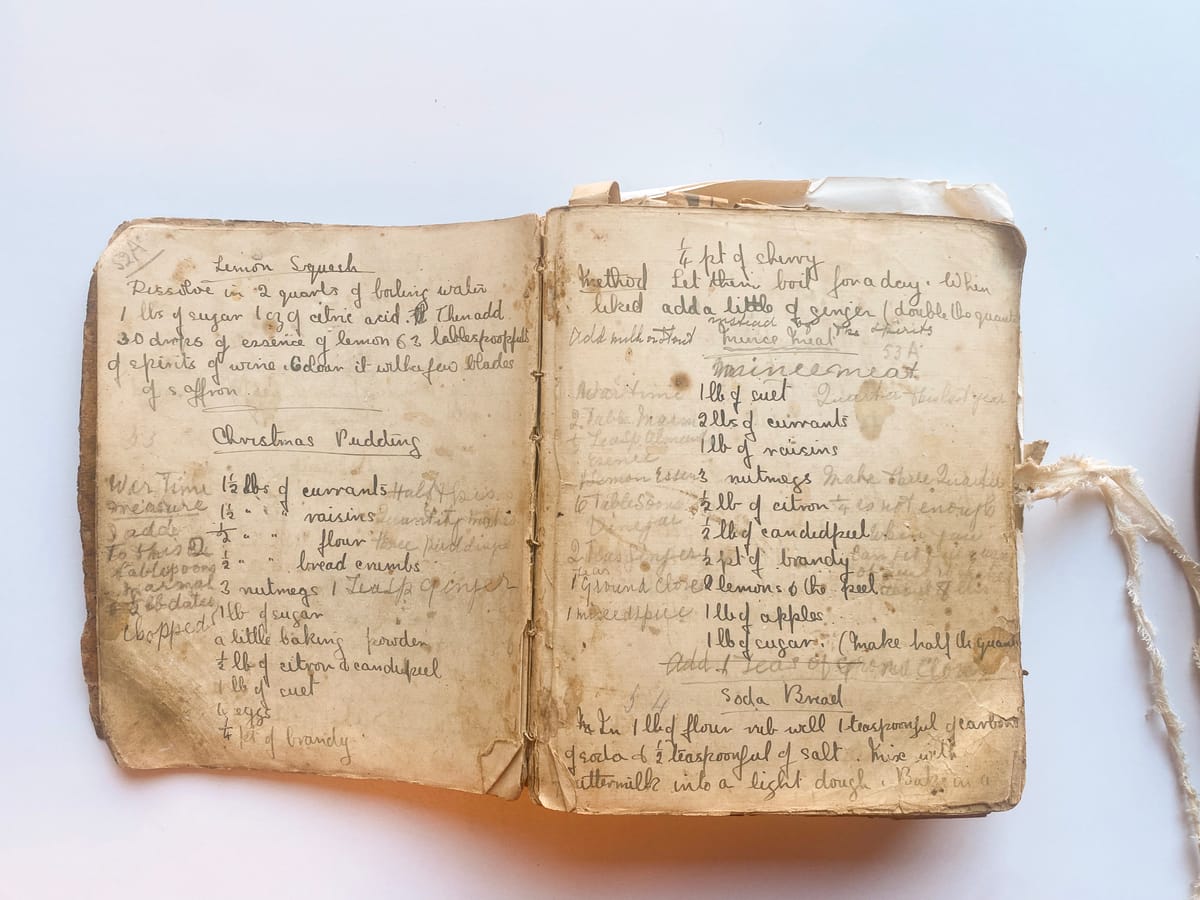 52A
Lemon Squash
Dissolve in 2 quarts of boiling water
1 lbs of sugar 1 oz of citric acid. Then add
30 drops of essence of lemon & 3 tablespoonfuls
of spirits of wine. Colour it with a few blades
of saffron.
53
Christmas Pudding
War Time
measure
I add
to this 2
tablespoons
marmal
2 lb dates
chopped
1½ lbs of currants Half this
1½ " " raisins quantity makes
½ " " flour three puddings
½ " " bread crumbs
3 nutmegs 1 Teasp ginger
1 lb of sugar
a little baking powder
½ lb of citron & candipeel
1 lb of suet
4 eggs
¼ pt of brandy
¼ pt of sherry
Method Let them boil for a day. When
liked add a little of ginger (double the quant
instead of the spirits
Add milk
Mince Meat
53A
Mincemeat
War time
2 Table Marm
½ Teasp Almond
Essence
Lemon Essen
6 Table Spoons
Vinegar
2 Teas Ginger
1 Ground Clove
1 mixed spice
1 lb of suet Quarter this last year
2 lbs of currants
1 lb of raisins
3 nutmegs Make three Quarter
½ lb of citron ¼ is not enough
½ lb of candipeel when you
½ pt of brandy can get
2 lemons & the peel
1 lb of apples
1 lb of sugar. (Make half the quant
Add 1 Teas of Ground Cloves
54
Soda Bread
In 1 lb of flour rub well 1 teaspoonful of carbon
of soda & ½ teaspoonful of salt. Mix with
uttermilk into a light dough. Bake in a